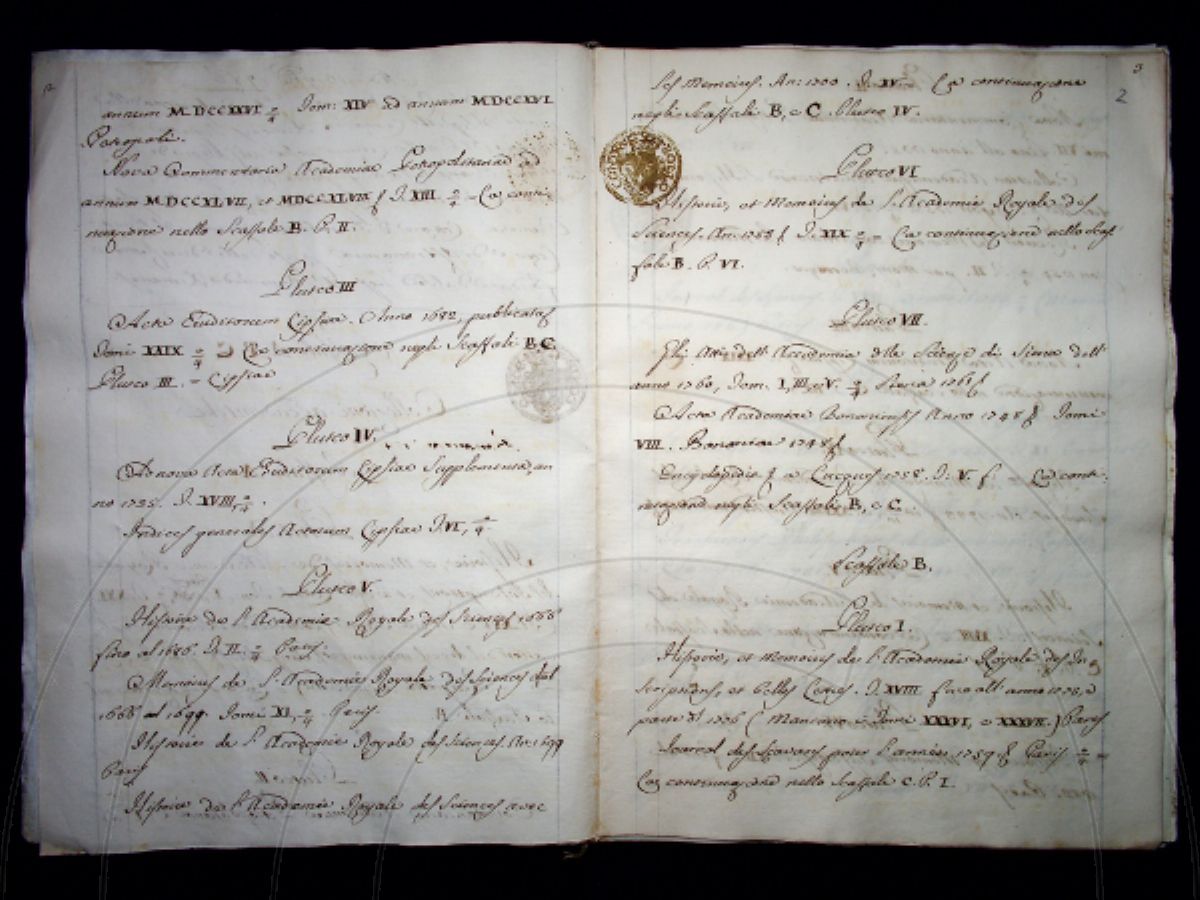 2
annum MDCCXXVI Tom: XIV ad annum MDCCXVI
Petropoli.
Nova Commentaria Academiae Petropolitanae ad
annum MDCCXLVII, et MDCCXLVIII T. XIII. 4 = La conti-
nuazione nello Scaffale B. P. II.
Pluteo III
Acta Eruditorum Lipsiae Anno 1682, publicata
Tomi XXIX 4 La continuazione negli Scaffali B, C.
Pluteo III. = Lipsiae
Pluteo IV.
Ad nova Acta Eruditorum Lipsiae Supplementa, an-
no 1735. T. XVIII, 4.
Indices generales Actorum Lipsiae T. VI, 4
Pluteo V.
Histoire de l'Academie Royale des Sciences 1666
fino al 1686. T. II. 4 Paris.
Memoires de l'Academie Royale des Sciences dal
1666 al 1699. Tomi XI, 4 Paris.
Histoire de l'Academie Royale des Sciences An: 1699
Paris
Histoire de l'Academie Royale des Sciences avec
3
2
les Memoires. An: 1700. T. XV. La continuazione
negli Scaffali B, e C. Pluteo IV.
Pluteo VI
Histoire, et Memoires de l'Academie Royale des
Sciences. An: T. XIX 4 = La continuazione nello Scaf-
fale B. P. VI.
Pluteo VII.
Gli Atti dell'Accademia delle Scienze di Siena dell'
anno 1760, Tom. I, III, e V. 4, Siena
Acta Academiae Bononiensis Anno 1748 Tomi
VIII. Bononiae 1748
Encyclopedie a Lucques 1758. T: V. f. La conti-
nuazione negli Scaffali B, e C
Scaffale B.
Pluteo I.
Histoire, et Memoires de l'Academie Royale des In-
scriptions, et belles Lettres. T. XVIII fino all'anno
parte 1776 (Mancano i Tomi XXXVI, e XXXVII.) Paris
Journal des Scavans pour l'année 1757 Paris 4 =
La continuazione nello Scaffale C. P. I.